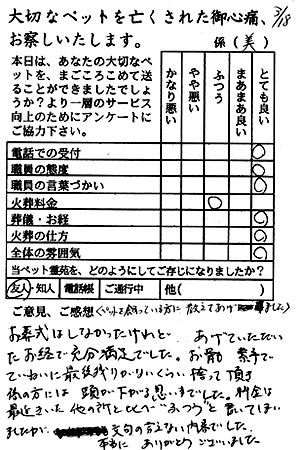 大切なペットを亡くされた御心痛、
お察しいたします。
3/18
係(美)
本日は、あなたの大切なペ
ットを、まごころこめて送
ることができましたでしょ
うか?より一層のサービス
向上のためにアンケートに
ご協力下さい。
かなり悪い
やや悪い
ふつう
まあまあ良い
とても良い
電話での受付 ○
職員の態度 ○
職員の言葉づかい ○
火葬料金 ○
葬儀・お経 ○
火葬の仕方 ○
全体の雰囲気 ○
当ペット霊苑を、どのようにしてご存じになりましたか?
友人・知人 電話帳 ご通行中 他( )
ご意見、ご感想(ペットを飼っている方に教えてあげました)
お葬式はしなかったけれど あげていただい
たお経で充分満足でした。お骨 素手で
ていねいに最後残りがないくらい 捨って頂き
係の方には 頭が下がる思いまでした。料金は
最近きいた 他の所と比べ"ふつう"と書いてしまい
ましたが 文句の言えない内容でした。
本当に ありがとう ございました